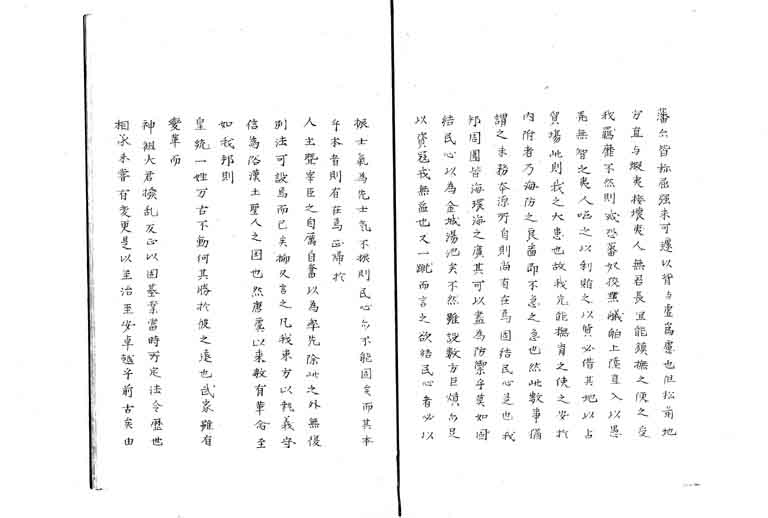 藩亦皆称屈强未可遽以胥与虚為慮也但松前地
方直与蝦夷接壤夷人無君長宜能鎮撫之使之受
我羈靡不然則或恐蕃奴狡黠艤舶上陸直入以愚
无無智之夷人啗之以利賂之以貨必借其地以占
貿場此則我之大患也故我先能撫育之使之安於
内附者乃海防之良畜即不急之急也然此数事偏
謂之末務本源所自則尚有在焉固結民心是也我
邦周圍皆海環海之廣其可以盡為防禦乎莫如固
結民心以為金城湯池矣不然雖設数万巨熕亦足
以資冦我無益也又一蹴而言之欲結民心者必以
振士氣為先士気不振則民心亦不能固矣而其本
乎本者則有在焉亦歸於
人主曁宰臣之自厲自奮以為率先除此之外無復
別法可設焉而已矣抑又言之凡我東方以執義守
信為俗漢土聖人之国也然唐虞以来数有革命至
如我邦則
皇統一姓万古不動何其勝於彼之遠也武家雖有
變革而
神祖大君撥乱反正以固基業當時所定法令歴世
相承未嘗有変更是以至治至安卓越乎前古矣由